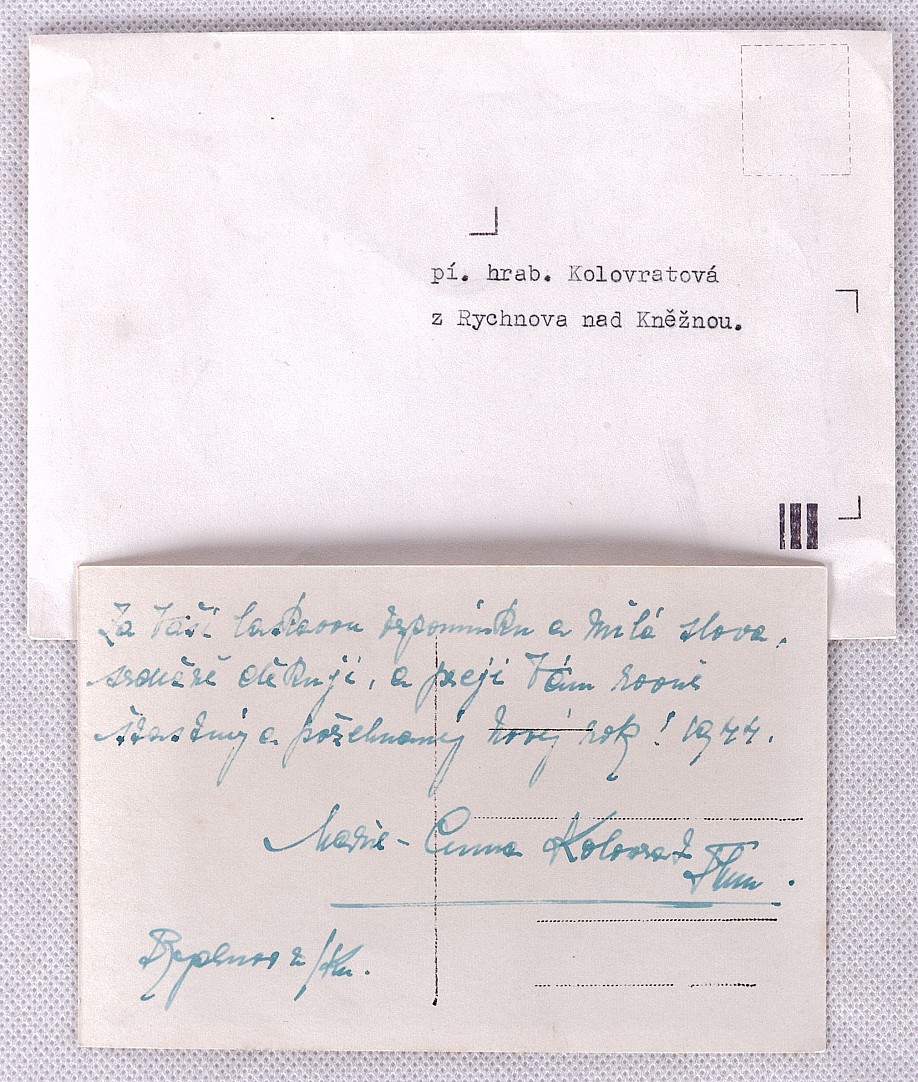 pí. hrab. Kolovratová
z Rychnova nad Kněžnou.
Za Vaší laskavou vzpomínku a milá slova,
srdečně děkuji, a přeji Vám rovně
šťastný a požehnaný nový rok! 1944.
Marie-Anna Kolovrat
Thun.
Rychnov n/Kn.